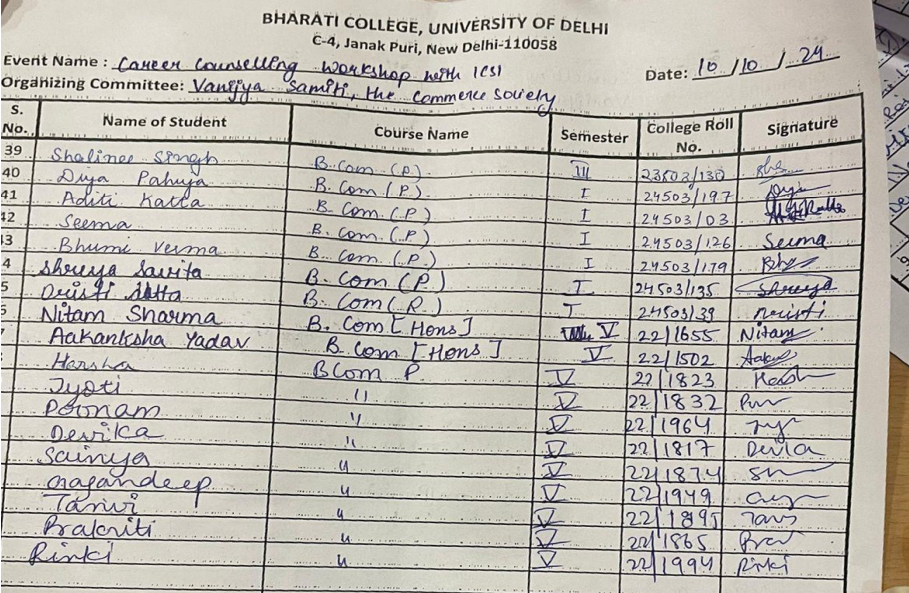 BHARATI COLLEGE, UNIVERSITY OF DELHI
C-4, Janak Puri, New Delhi-110058
Event Name : Career Counselling Workshop with ICSI
Date: 10/10/24
Organizing Committee: Vanijya Samiti, the Commerce Society
S. No. Name of Student Course Name Semester College Roll No. Signature
39 Shalinee Singh B.Com (P) III 23503/130
40 Diya Pahuja B.Com (P) I 24503/197 Diya
41 Aditi Katta B.Com (P) I 24503/03
42 Seema B.Com (P) I 24503/126 Seema
3 Bhumi Verma B.Com (P) I 24503/179
4 Shreya Savita B.Com (P) I 24503/135 Shreya
5 Dristi B.Com (P) I 24503/39 Dristi
Nitam Sharma B.Com [Hons] V 22/1655 Nitam
Aakanksha Yadav B.Com [Hons] V 22/1502
Harsha BCom P V 22/1823
Jyoti " V 22/1832
Poonam " V 22/1964
Devika " V 22/1817
Sainya " V 22/1874
Gagandeep " V 22/1949
Tanvi " V 22/1895
Prakriti " V 22/1865
Rinki " V 22/1994 Rinki